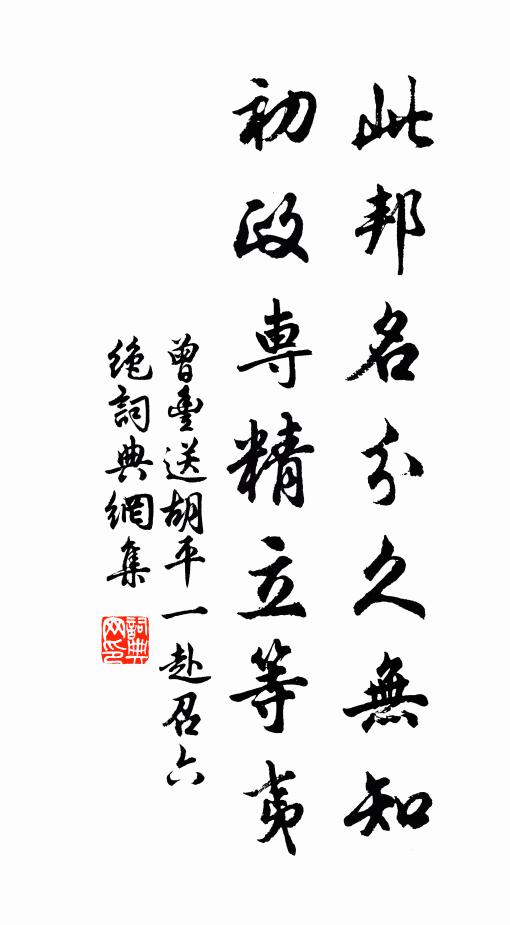 此邦名分久無知
初政專精立等夷
曾豐送胡平一赴召六
絶詞典網集
詞典網印